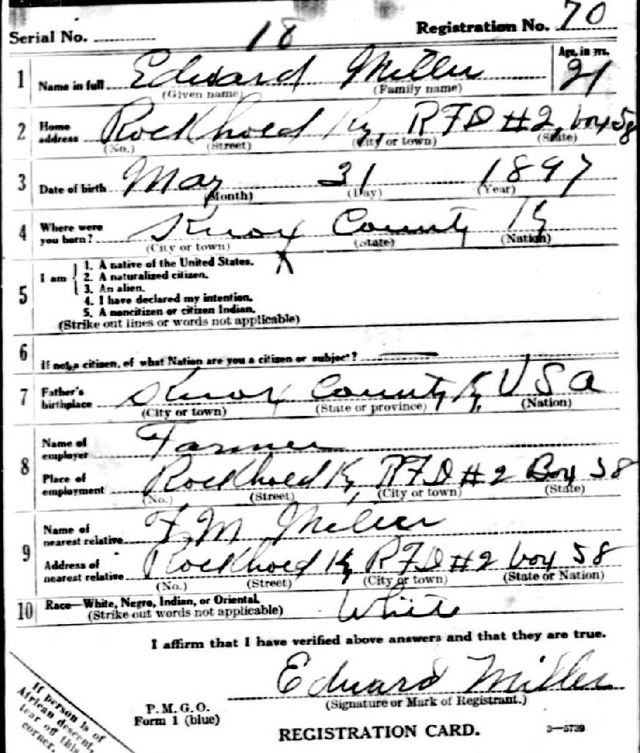 Serial No. 18 Registration No. 70
1 Name in full Edward Miller Age, in yrs. 21
(Given name) (Family name)
2 Home address Rockhold Ky, RFD #2, box 58
(No.) (Street) (City or town) (State)
3 Date of birth May 31 1897
(Month) (Day) (Year)
4 Where were you born? Knox County Ky
(City or town) (State) (Nation)
5 I am
1. A native of the United States. X
2. A naturalized citizen.
3. An alien.
4. I have declared my intention.
5. A noncitizen or citizen Indian.
(Strike out lines or words not applicable)
6 If not a citizen, of what Nation are you a citizen or subject? —
7 Father's birthplace Knox County Ky USA
(City or town) (State or province) (Nation)
8 Name of employer Farmer
Place of employment Rockhold Ky RFD #2 Box 58
(No.) (Street) (City or town) (State)
9 Name of nearest relative F.M. Miller
Address of nearest relative Rockhold Ky RFD #2 box 58
(No.) (Street) (City or town) (State or Nation)
10 Race—White, Negro, Indian, or Oriental. White
(Strike out words not applicable)
I affirm that I have verified above answers and that they are true.
Edward Miller
(Signature or Mark of Registrant.)
P.M.G.O.
Form 1 (blue)
REGISTRATION CARD. 3—5739
If person is of
African descent,
tear off this
corner.